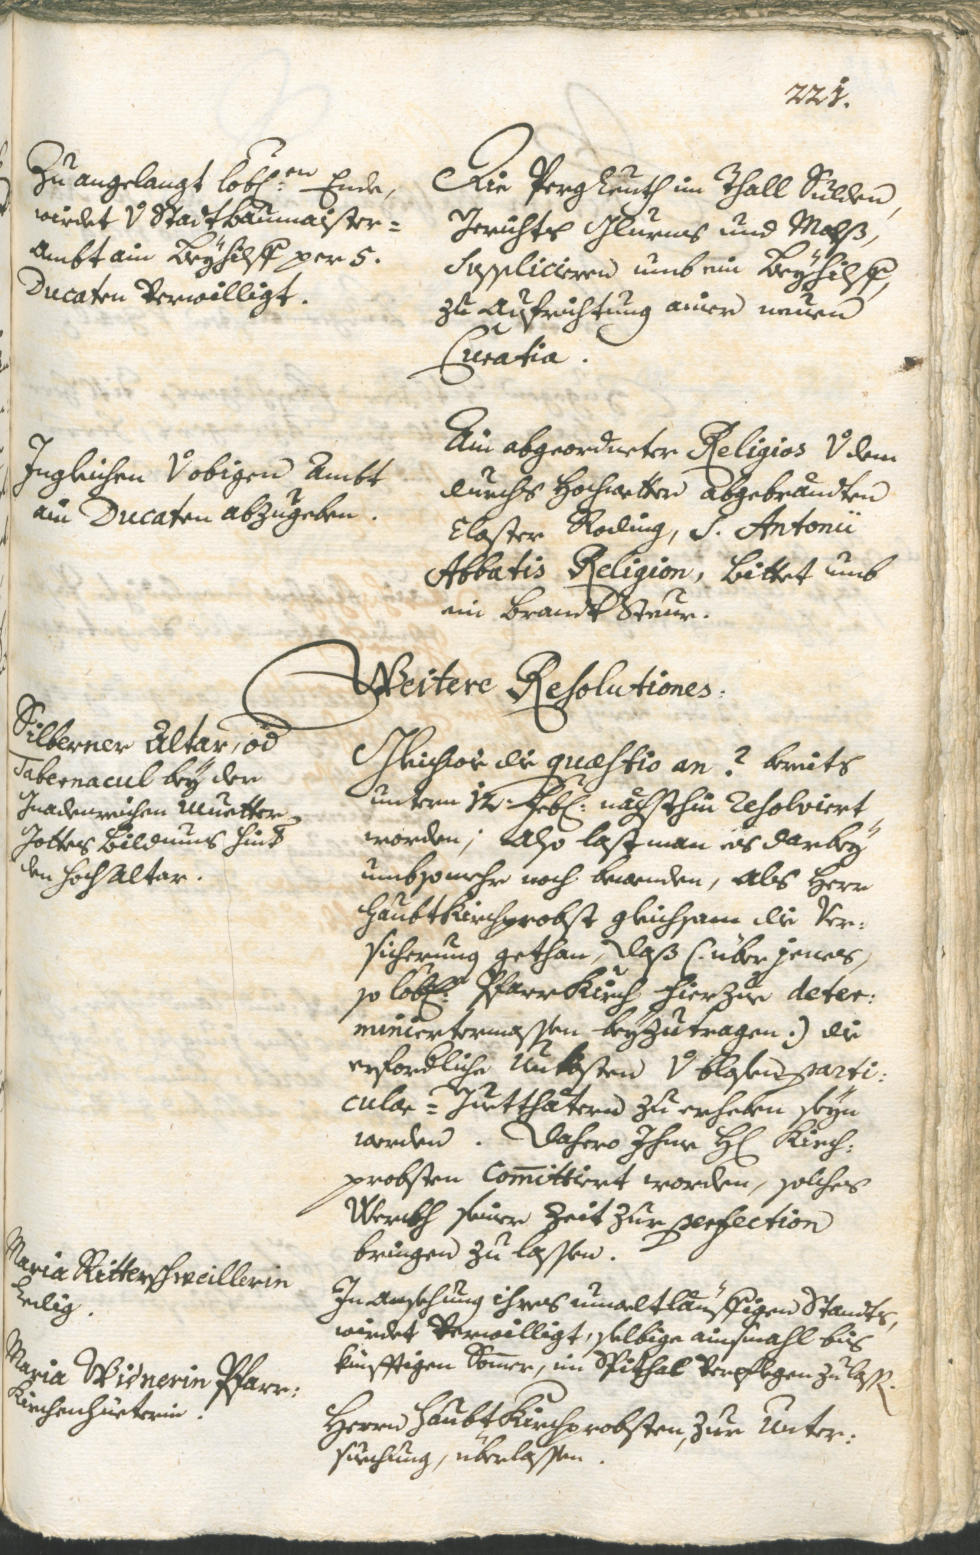 221.
Zu angelangt lobl:en Ende,
wirdet V Stadtbaumaister=
Ambt ain Beyhilff per 5.
Ducaten Verwilligt.
Die Pergleuth im Thall Sulden,
Gerichts Glurns und Malß,
Supplicieren umb ein Beyhilff,
zu Aufrichtung ainer neuen
Curatia.
Ingleichen V obigen Ambt
ain Ducaten abzugeben.
Ain abgeordneter Religios V dem
durchs Hochwetter abgebrandten
Closter Roding, S. Antonii
Abbatis Religion, bittet umb
ein Brandt Steur.
Weitere Resolutiones:
Silberner Altar, od
Tabernacul bey der
Gnadenreichen Muetter
Gottes Bildnuns hint
den Hoch Altar.
Gleichwie die quæstio an? bereits
untern 12: Feb: nächsthin resolviert
worden; Also last man es darbey
umbsomehr noch bewenden, als Herr
Haubt Kirchprobst gleichsam die Ver:
sicherung gethan, daß (: über jenes,
so lobl: Pfarr Kirch hierzue deter:
miniertermassen beyzutragen :) die
erforderliche Unkosten V blossen parti:
cular= Guetthätern zu erheben seyn
werden. Dahero Ihme H: Kirch:
probsten Committiert worden, solches
Werckh seiner Zeit zur perfection
bringen zu lassen.
Maria Ritterschweillerin
Ledig.
In Ansehung ihres unweltläuffigen Standts,
wirdet Verwilligt, selbige ainsmahl bis
künfftigen Somer, im Spithal Verpflegen zu lass.
Maria Widnerin Pfarr:
Kirchenhüeterin.
Herrn Haubt Kirchprobsten, zur Unter:
suchung, überlassen.